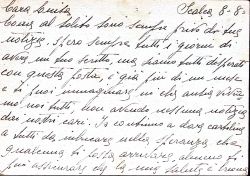 Cara Anita Scalea 8-8-
Come al solito sono sempre privo di tue
notizie. Spero sempre tutti i giorni di
avere un tuo scritto, ma siamo tutti disperati
con questa posta, è già più di un mese
e ti puoi immaginare in che ansia vivia
mo noi tutti, non avendo nessuna notizia
dei nostri cari. Io continuo a dare cartoline
a tutti da imbucare nella speranza che
qualcuna ti possa arrivare, almeno ti
puoi assicurare che la mia salute è buona